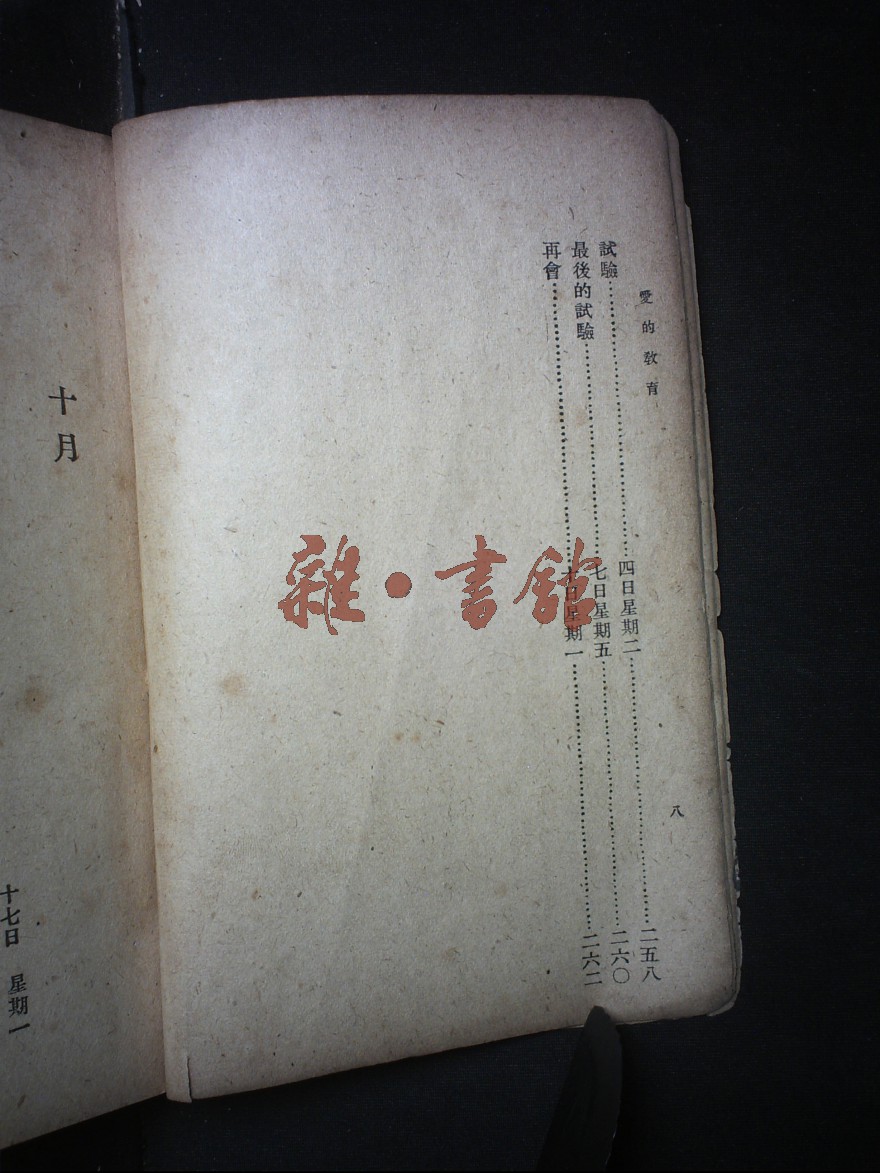 愛的教育
試驗……四日星期二……二五八
最後的試驗……七日星期五……二六〇
再會……十日星期一……二六二
八
十月
十七日 星期一
雜·書館